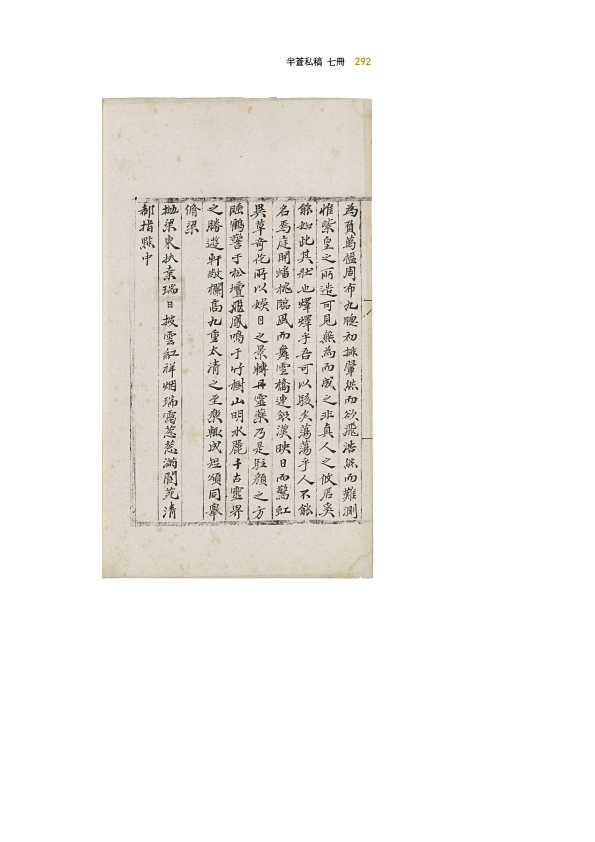 半蒼私稿 七冊 292
為頁萬儘周布九牕初抽鞶然而欲飛浩然而難測
惟紫皇之所造可見無為而成之非真人之攸居奚
能如此其壯也燁燁乎吾可以駭矣蕩蕩乎人不能
名焉庭開焰桃臨風而舞雪橋連銀漢映日而驚虹
異草奇花所以娛目之景轉丹靈藥乃是駐顏之方
睡鶴警于松壇飛鳳鳴于竹樹山明水麗千古靈界
之勝遊軒敞欄高九重太清之至樂輒成短頌同擧
脩梁
抛梁東扶桒瑞日披雲紅祥烟瑞靄葱葱滿閬苑清
都指點中